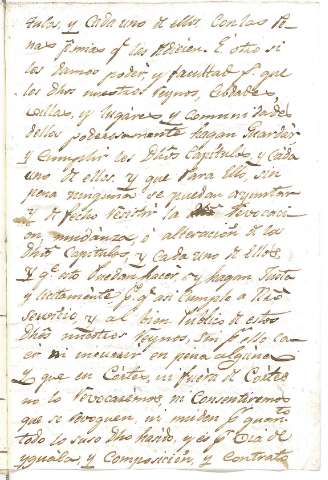 tulos, y Cada uno de ellos con las Pe-
nas p.r mias q.e les Pidieren. E otro si
les damos poder, y facultad p.a que
los Dhos nuestros Reynos, Cibdades
Villas, y lugares y Comunidades
dellos poderosamente hagan Guardar
y Cumplir los Dhos Capitulos y Cada
uno de ellos. y que para Ello, sin
pena ninguna se puedan ayuntar
y de fecho resistir la revocaci-
on mudanza, o alteracion de los
Dhos Capitulos, y Cada uno de Ellos.
Y q.e esto puedan facer, y hagan Justa
y licitamente p.r q.e asi cumple a Nro
Servicio, y al bien Publico de estos
Dhos nuestros Reynos, sin p.r ello ca-
er ni incurrir en pena alguna
Y que en Cortes, ni fuera de Cortes
no lo revocaremos, ni Consentiremos
que se revoquen, ni muden p.r quanto
todo lo suso Dho ha sido, y es p.r Via de
yguala, y Composición, y Contrato